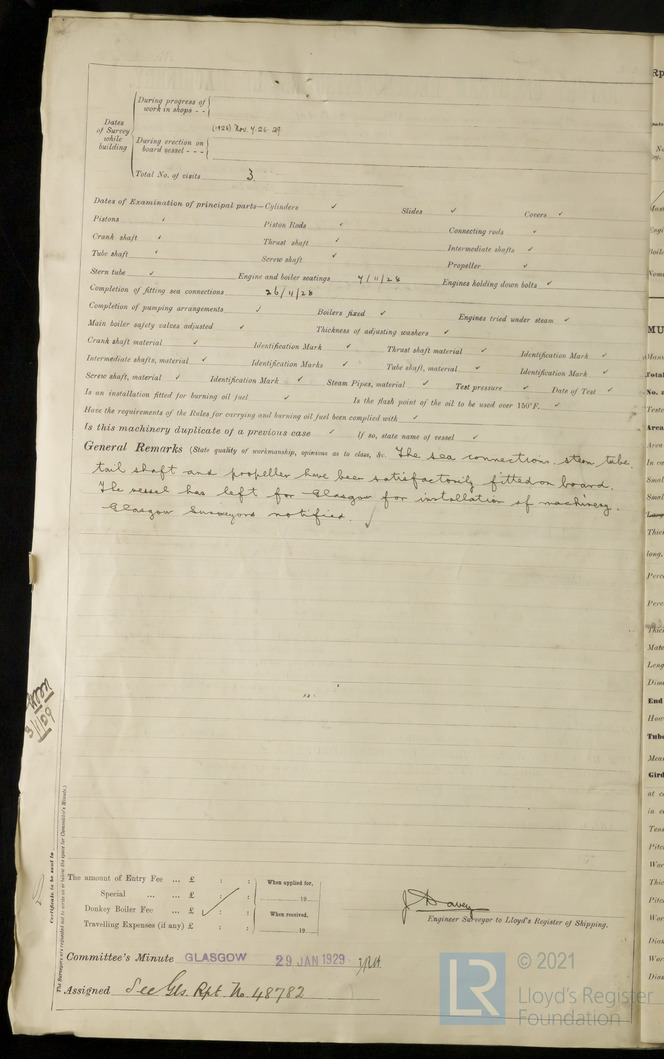 During progress of
work in shops - -
Dates
of Survey
while
building
(1928) Nov. 7. 26. 29
During erection on
board vessel - - -
Total No. of visits 3
Dates of Examination of principal parts—Cylinders ✓ Slides ✓ Covers ✓
Pistons ✓ Piston Rods ✓ Connecting rods ✓
Crank shaft ✓ Thrust shaft ✓ Intermediate shafts ✓
Tube shaft ✓ Screw shaft ✓ Propeller ✓
Stern tube ✓ Engine and boiler seatings 7/11/28 Engines holding down bolts ✓
Completion of fitting sea connections 26/11/28
Completion of pumping arrangements ✓ Boilers fixed ✓ Engines tried under steam ✓
Main boiler safety valves adjusted ✓ Thickness of adjusting washers ✓
Crank shaft material ✓ Identification Mark ✓ Thrust shaft material ✓ Identification Mark ✓
Intermediate shafts, material ✓ Identification Marks ✓ Tube shaft, material ✓ Identification Mark ✓
Screw shaft, material ✓ Identification Mark ✓ Steam Pipes, material ✓ Test pressure ✓ Date of Test ✓
Is an installation fitted for burning oil fuel ✓ Is the flash point of the oil to be used over 150°F. ✓
Have the requirements of the Rules for carrying and burning oil fuel been complied with ✓
Is this machinery duplicate of a previous case ✓ If so, state name of vessel ✓
General Remarks (State quality of workmanship, opinions as to class, &c. The sea connections, stern tube,
tail shaft and propeller have been satisfactorily fitted on board.
The vessel has left for Glasgow for installation of machinery.
Glasgow Surveyors notified. ✓
Certificate to be sent to
The Surveyors are requested not to write on or below the space for Committee's Minute.)
The amount of Entry Fee ... £ : :
Special ... ... £ : :
Donkey Boiler Fee ... £ : :
Travelling Expenses (if any) £ : :
When applied for,
19
When received,
19
J Davey
Engineer Surveyor to Lloyd's Register of Shipping.
Committee's Minute GLASGOW 29 JAN 1929
Assigned See Gls. Rpt. No 48782
© 2021
Lloyd's Register
Foundation
LR